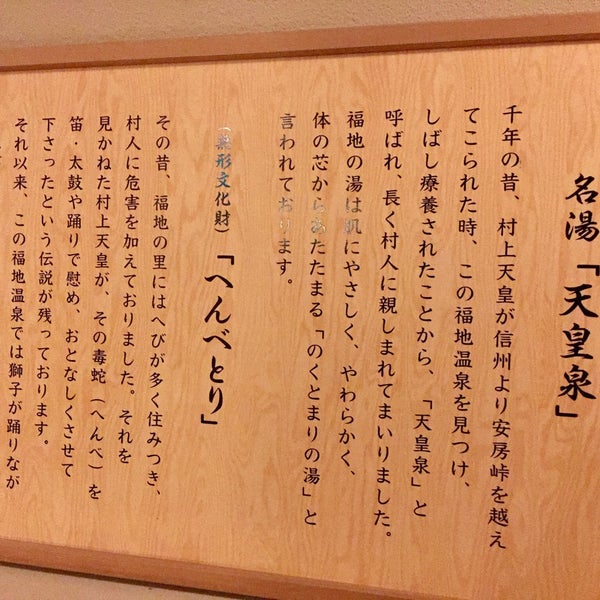 名湯「天皇泉」
千年の昔、村上天皇が信州より安房峠を越え
てこられた時、この福地温泉を見つけ、
しばし療養されたことから、「天皇泉」と
呼ばれ、長く村人に親しまれてまいりました。
福地の湯は肌にやさしく、やわらかく、
体の芯からあたたまる「のくとまりの湯」と
言われております。
(無形文化財)「へんべとり」
その昔、福地の里にはへびが多く住みつき、
村人に危害を加えておりました。それを
見かねた村上天皇が、その毒蛇(へんべ)を
笛・太鼓や踊りで慰め、おとなしくさせて
下さったという伝説が残っております。
それ以来、この福地温泉では獅子が踊りなが